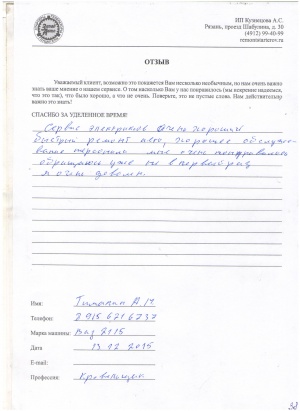 ИП Кузнецова А.С.
Рязань, проезд Шабулина, д. 30
(4912) 99-40-99
remontstarterov.ru
ОТЗЫВ
Уважаемый клиент, возможно это покажется Вам несколько необычным, но нам очень важно
знать ваше мнение о нашем сервисе. О том насколько Вам у нас понравилось (мы искренне надеемся,
что это так), что было хорошо, а что не очень. Поверьте, это не пустые слова. Нам действительно
важно это знать!
СПАСИБО ЗА УДЕЛЕННОЕ ВРЕМЯ!
Сервис электриков очень хороший
быстрый ремонт авто, хорошее обслужи-
вание персонала мне очень понравилось
обращаюсь уже не в первый раз
и очень доволен.
Имя: А М
Телефон: 8 915 621 6737
Марка машины: Ваз 2115
Дата 13 02 2015
E-mail:
Профессия: Кровельщик